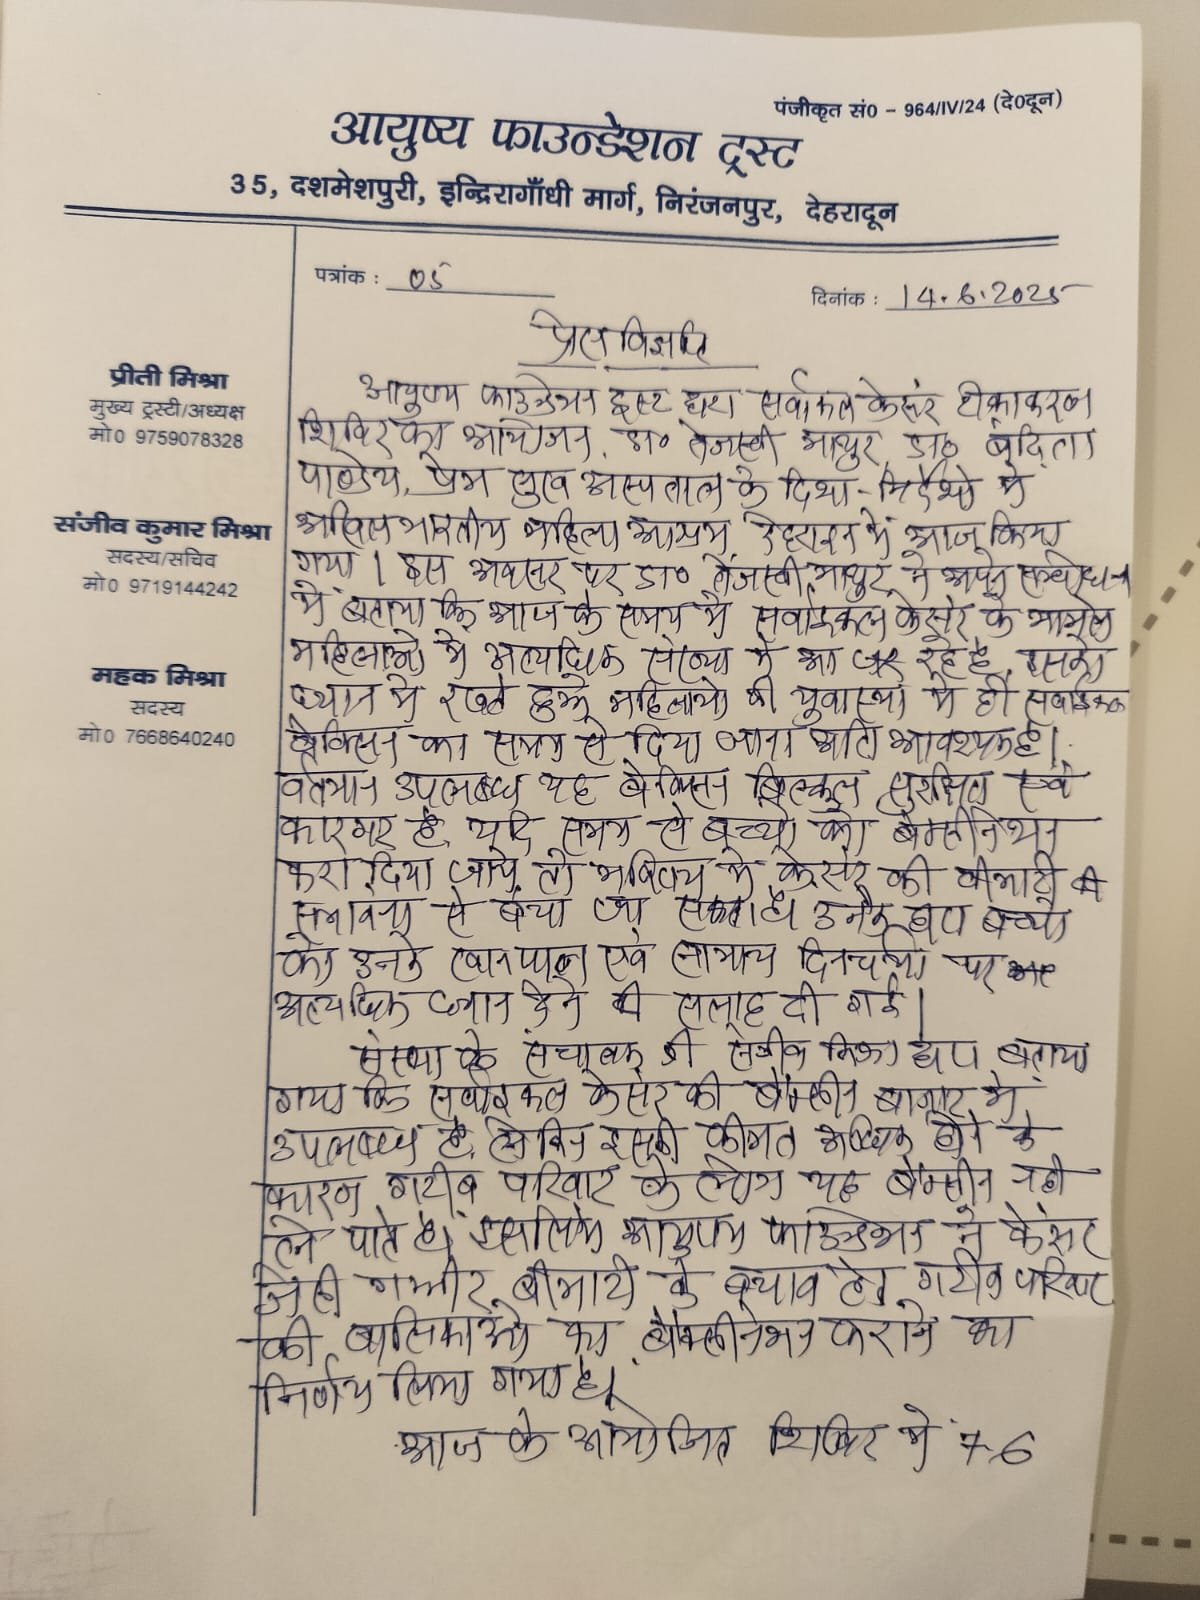 पंजीकृत सं0 – 964/IV/24 (दे0दून)
आयुष्य फाउन्डेशन ट्रस्ट
35, दशमेशपुरी, इन्दिरागाँधी मार्ग, निरंजनपुर, देहरादून
पत्रांक : 05
दिनांक : 14.6.2025
प्रेस विज्ञप्ति
प्रीती मिश्रा
मुख्य ट्रस्टी/अध्यक्ष
मो0 9759078328
संजीव कुमार मिश्रा
सदस्य/सचिव
मो0 9719144242
महक मिश्रा
सदस्य
मो0 7668640240
आयुष्य फाउन्डेशन ट्रस्ट द्वारा सर्वाकल केंसर टीकाकरण
शिविर का आयोजन, डा० तेजस्वी माथुर, डा० वंदिता
पाण्डेय, प्रेम सुख अस्पताल के दिशा-निर्देशो में
अखिल भारतीय महिला आश्रम, देहरादून में आज किया
गया। इस अवसर पर डा० तेजस्वी माथुर ने अपने सम्बोधन
में बताया कि आज के समय में सर्वाइकल केंसर के मामले
महिलाओ में अत्यधिक संख्या में आ रहे है, इसको
ध्यान में रखते हुये महिलाओ की युवास्था में ही सर्वाइकल
वैक्सिन का समय से दिया जाना अति आवश्यक है।
वर्तमान उपलब्ध यह वेक्सिन बिल्कुल सुरक्षित एवं
कारगर है, यदि समय से बच्चो को वेक्सीनेशन
करा दिया जाये तो भविष्य में केंसर की बीमारी की
सम्भावना से बचा जा सकता है। उनके द्वारा बच्चो
को उनके खानपान एवं सामान्य दिनचर्या पर
अत्यधिक ध्यान देने की सलाह दी गई।
संस्था के संचालक श्री संजीव मिश्रा द्वारा बताया
गया कि सर्वाइकल केंसर की वैक्सीन बाजार में
उपलब्ध है, लेकिन इसकी कीमत अधिक होने के
कारण गरीब परिवार के लोग यह वैक्सीन नही
लगा पाते है। इसलिये आयुष्य फाउन्डेशन ने केंसर
जैसी गम्भीर बीमारी के बचाव हेतु गरीब परिवार
की बालिकाओ का वैक्सीनेशन कराने का
निर्णय लिया गया है।
आज के आयोजित शिविर में 76